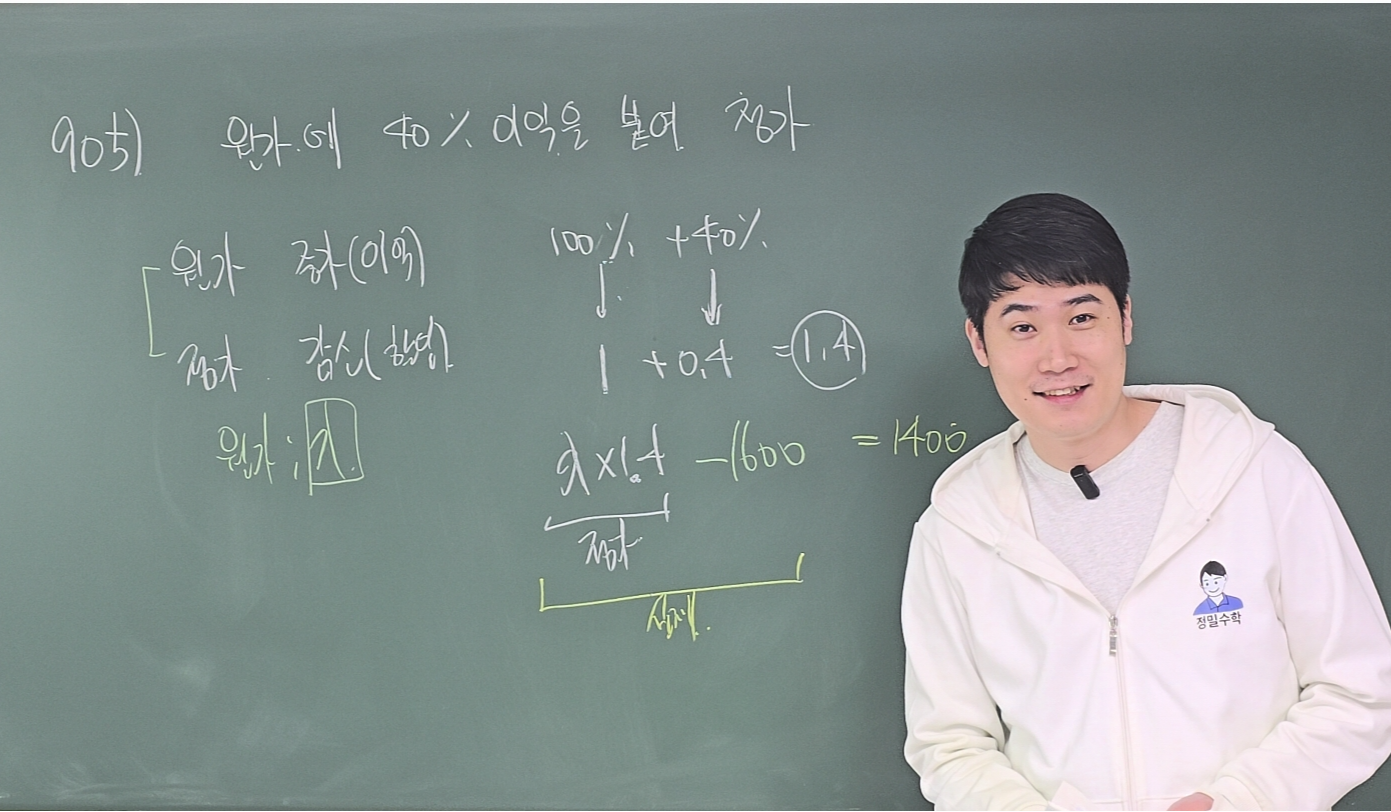 905) 원가에 40% 이익을 붙여 정가
원가 증가(이익) 100% +40%
정가 감소(할인) 1 +0.4 =1.4
원가: x x×1.4 -1600 =1400
정가
실제
정밀수학